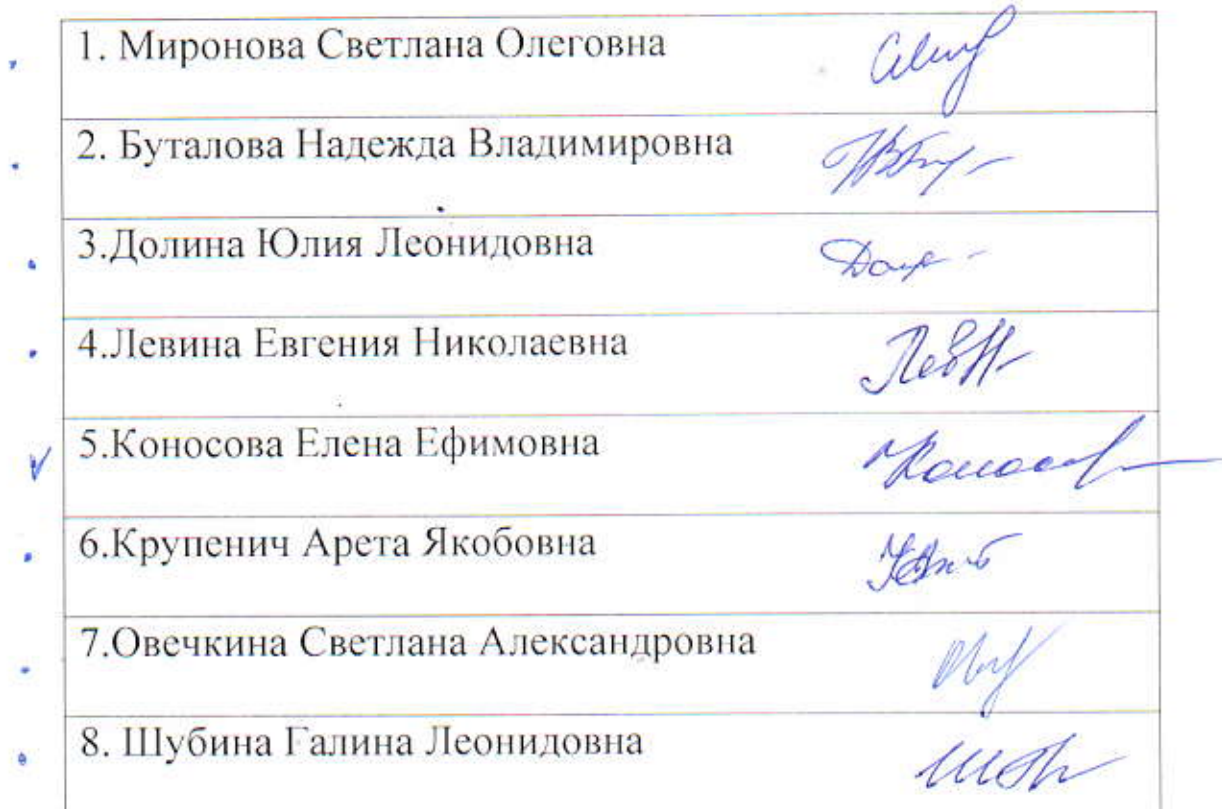 1. Миронова Светлана Олеговна
2. Буталова Надежда Владимировна
3.Долина Юлия Леонидовна
4.Левина Евгения Николаевна
5.Коносова Елена Ефимовна
6.Крупенич Арета Якобовна
7.Овечкина Светлана Александровна
8. Шубина Галина Леонидовна